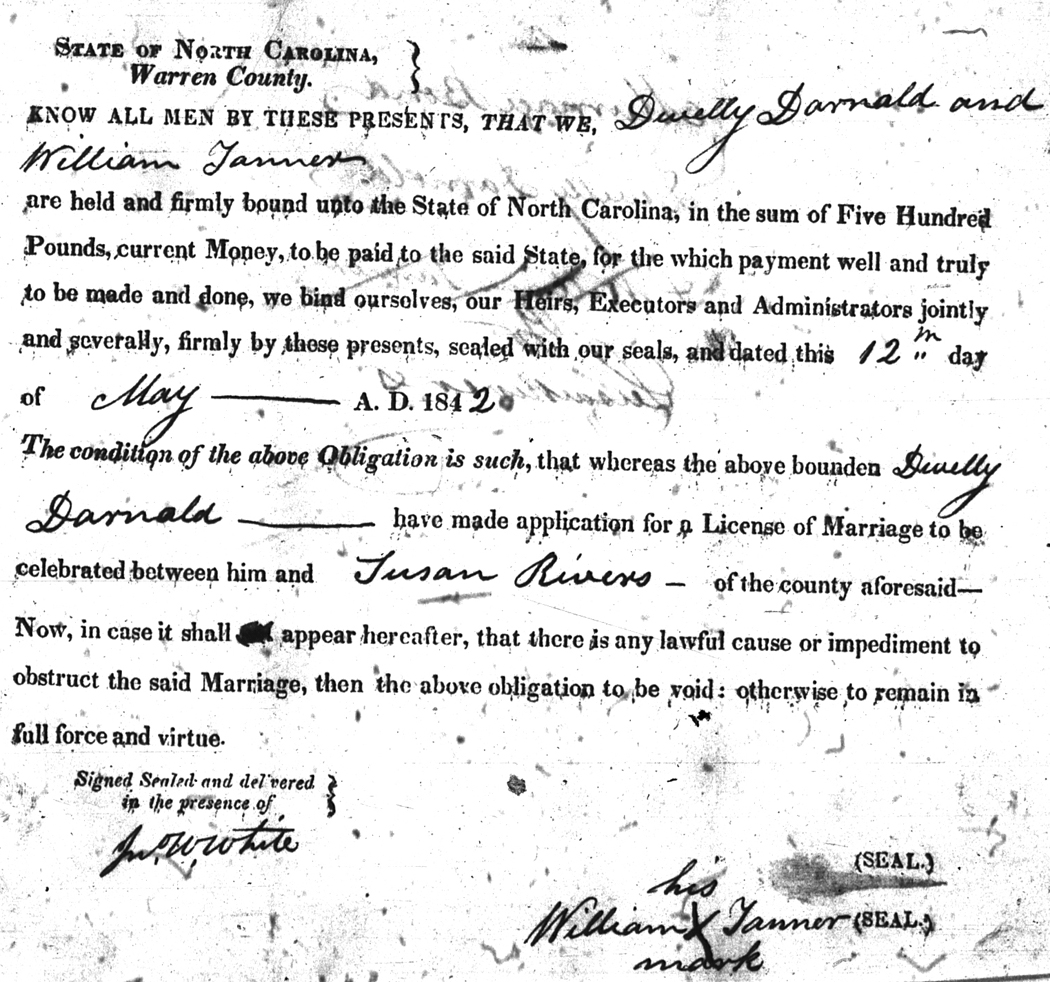 STATE OF NORTH CAROLINA, }
Warren County.
KNOW ALL MEN BY THESE PRESENTS, THAT WE, Dwelly Darnald and
William Tanner
are held and firmly bound unto the State of North Carolina, in the sum of Five Hundred
Pounds, current Money, to be paid to the said State, for the which payment well and truly
to be made and done, we bind ourselves, our Heirs, Executors and Administrators jointly
and severally, firmly by these presents, sealed with our seals, and dated this 12 day
of May A. D. 1842
The condition of the above Obligation is such, that whereas the above bounden Dwelly
Darnald have made application for a License of Marriage to be
celebrated between him and Susan Rivers – of the county aforesaid—
Now, in case it shall appear hereafter, that there is any lawful cause or impediment to
obstruct the said Marriage, then the above obligation to be void: otherwise to remain in
full force and virtue.
Signed Sealed and delivered }
in the presence of
Jno. W. White
(SEAL.)
his
William X Tanner (SEAL.)
mark